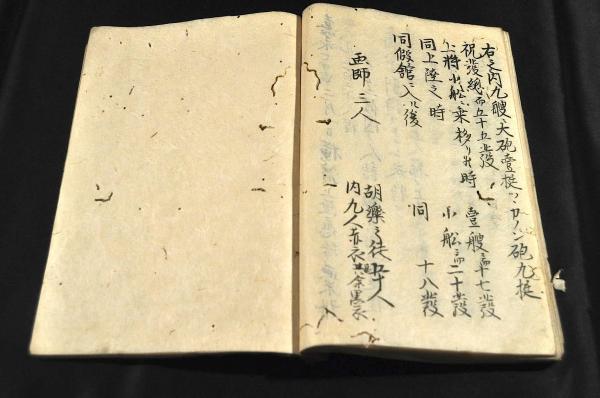 右之内九艘ニ大砲壹挺ツヽカノン砲九挺
祝發總而五十五發
上将小船ニ乗移り候時 壹艘ニ而十七發
小船ニ而二十發
同上陸之時 同 十八發
同假館ニ入候後
胡樂之徒 五十人
画師 三人 内九人赤衣